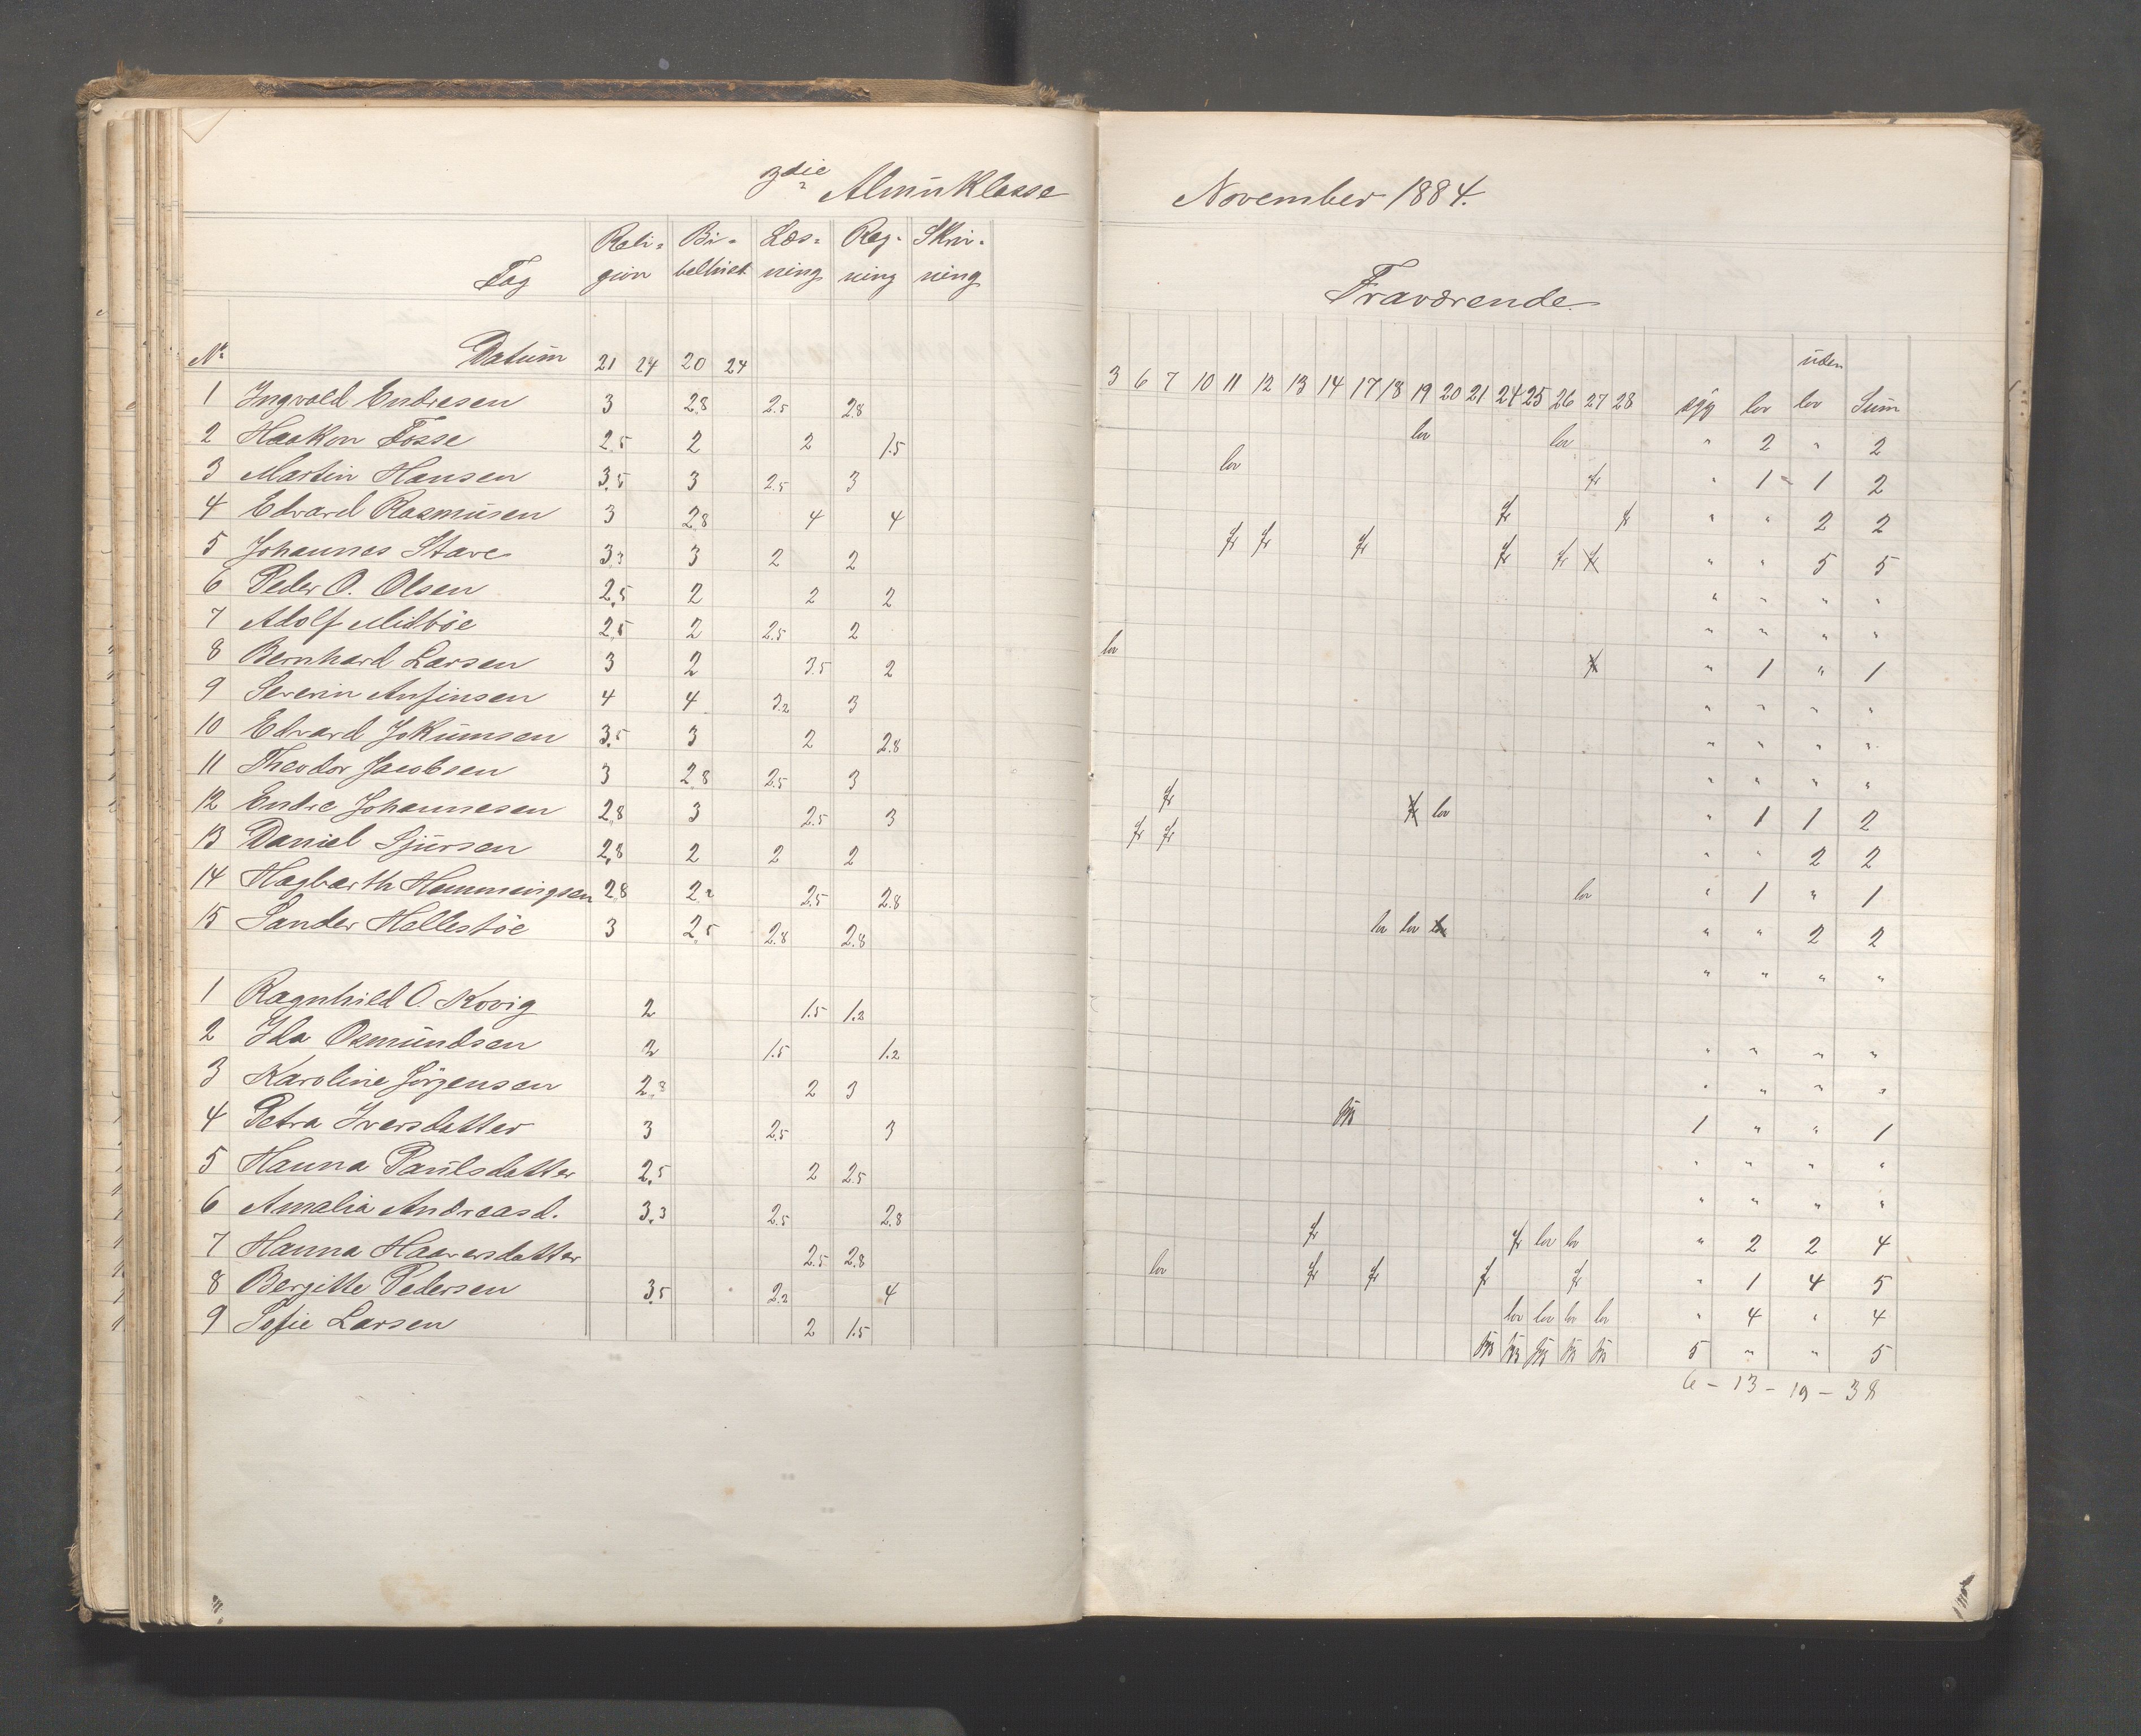 3die AlmuKlasse
Reli- Bi- Læs- Reg- Skri-
Fag gion belhist ning ning ning
No Datum 21 24 20 24
1 Ingvald Endresen 3 2.8 2.5 2.8
2 Haakon Fosse 2.5 2 2 1.5
3 Martin Hansen 3.5 3 2.5 3
4 Edvard Rasmusen 3 2.8 4 4
5 Johannes Stave 3.3 3 2 2
6 Peder O. Olsen 2.5 2 2 2
7 Adolf Midbøe 2.5 2 2.5 2
8 Bernhard Larsen 3 2 3.5 2
9 Severin Anfinsen 4 4 3.2 3
10 Edvard Jokumsen 3.5 3 2 2.8
11 Theodor Jacobsen 3 2.8 2.5 3
12 Endre Johannesen 2.8 3 2.5 3
13 Daniel Sjursen 2.8 2 2 2
14 Hagbarth Hemmingsen 2.8 2.2 2.5 2.8
15 Sander Hellestøe 3 2.5 2.8 2.8
1 Ragnhild O. Kovig 2 1.5 1.2
2 Ida Osmundsen 2 1.5 1.2
3 Karoline Jörgensen 2.8 2 3
4 Petra Iversdatter 3 2.5 3
5 Hanna Paulsdatter 2.5 2 2.5
6 Amalia Andreasd. 3.3 2.5 2.8
7 Hanna Haaversdatter 2.5 2.8
8 Bergitte Pedersen 3.5 2.2 4
9 Sofie Larsen 2 1.5
November 1884.
Fraværende
uden
3 6 7 10 11 12 13 14 17 18 19 20 21 24 25 26 27 28 syg lov lov Sum
lov lov " 2 " 2
lov fr " 1 " 1 2
fr fr " " 2 2
fr fr fr fr fr fr " " 5 5
" " " "
" " " "
lov fr " 1 " 1
" " " "
" " " "
" " " "
fr fr lov " 1 1 2
fr fr " " 2 2
lov " 1 " 1
lov lov lov " " 2 2
" " " "
" " " "
" " " "
1 " " 1
" " " "
" " " "
fr fr lov lov " 2 2 4
lov fr fr fr fr " 1 4 5
lov lov lov lov " 4 " 4
5 " " 5
6 - 13 - 19 - 38